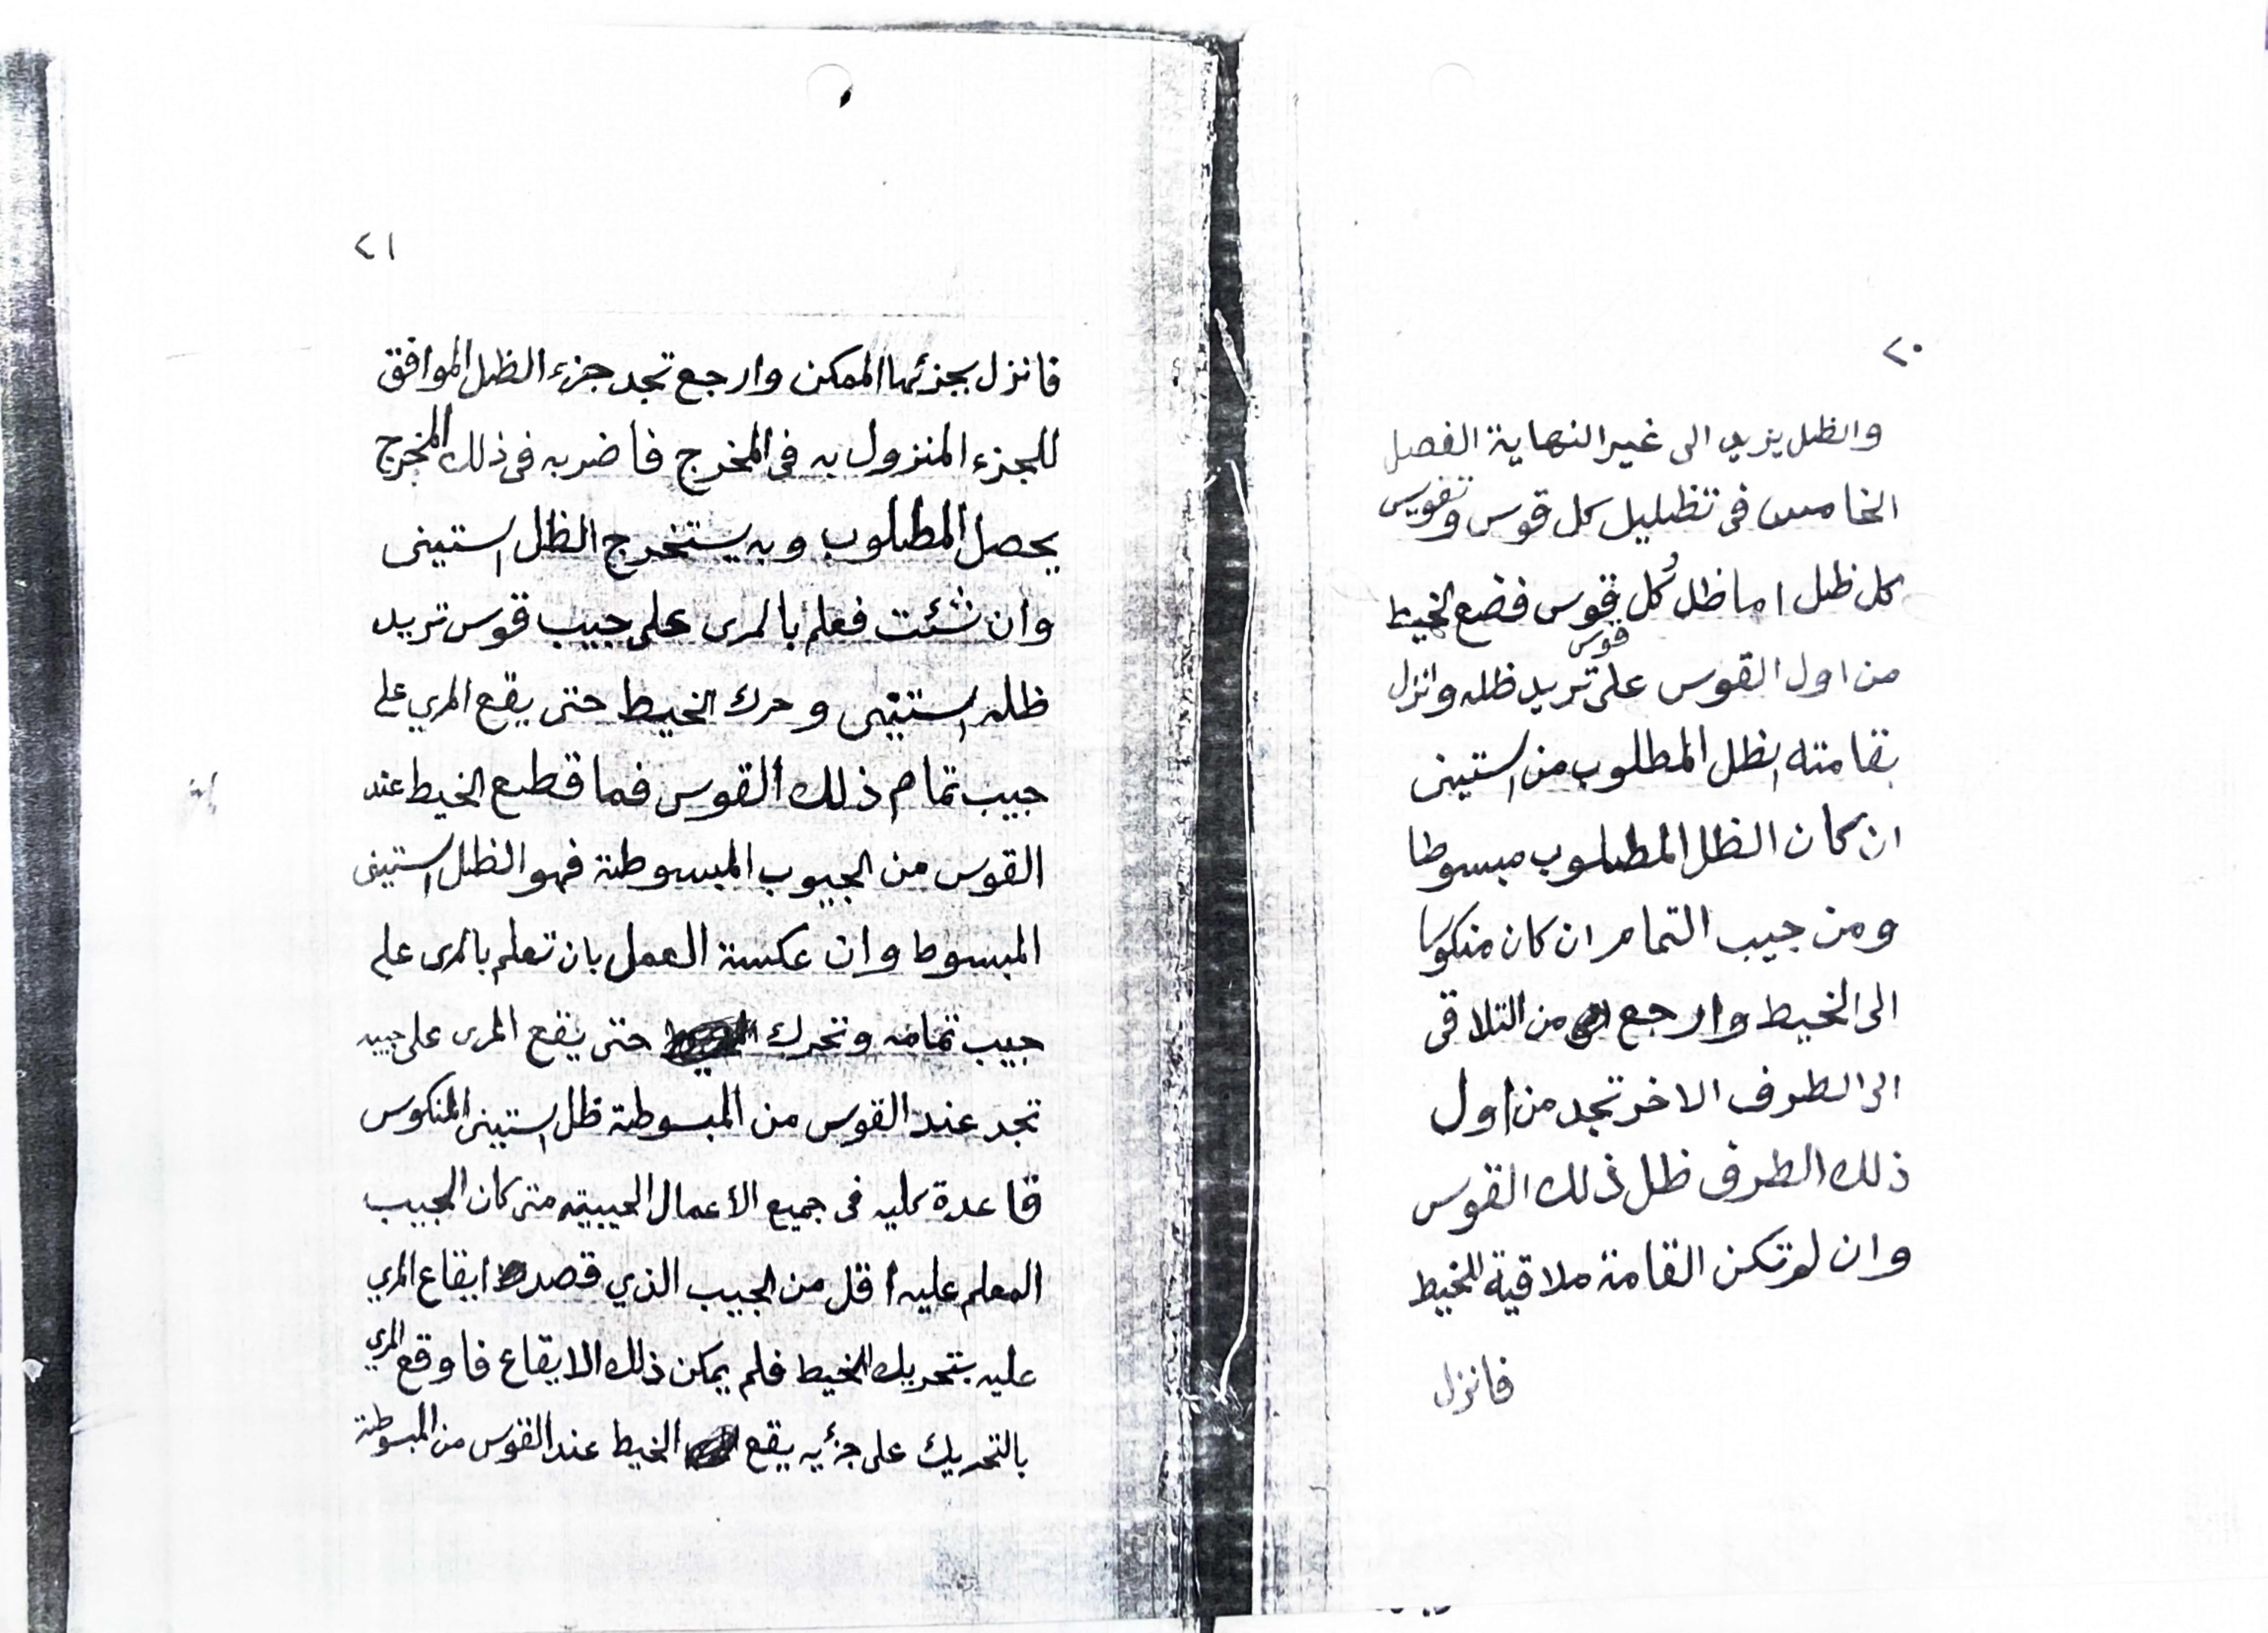 ٢٠
والظل يزيد الى غير النهاية الفصل
الخامس فى تظليل كل قوس وتقويس
كل ظل اما ظل كل قوس فضع الخيط
من اول القوس على قوس تريد ظله وانزل
بقامته الظل المطلوب من الستينى
ان كان الظل المطلوب مبسوطا
ومن جيب التمام ان كان منكوسا
الى الخيط وارجع من التلاقى
الى الطرف الاخر تجد من اول
ذلك الطرف ظل ذلك القوس
وان لم تكن القامة ملاقية للخيط
فانزل
٢١
فانزل بجزئها الممكن وارجع تجد جزء الظل الموافق
للجزء المنزول به فى المخرج فاضربه فى ذلك المخرج
يحصل المطلوب وبه يستخرج الظل الستينى
وان شئت فعلم بالمرى على جيب قوس تريد
ظله الستينى وحرك الخيط حتى يقع المري على
جيب تمام ذلك القوس فما قطع الخيط عند
القوس من الجيوب المبسوطة فهو الظل الستينى
المبسوط وان عكسة العمل بان تعلم بالمرى على
جيب تمامه وتحرك حتى يقع المرى على جيبه
تجد عند القوس من المبسوطة ظل الستينى المنكوس
قاعدة كليه فى جميع الأعمال الجيبيه متى كان الجيب
المعلم عليه أقل من الجيب الذي قصد ايقاع المري
عليه بتحريك الخيط فلم يمكن ذلك الايقاع فاوقع المري
بالتحريك على جزئيه يقع الخيط عند القوس من المبسوطة